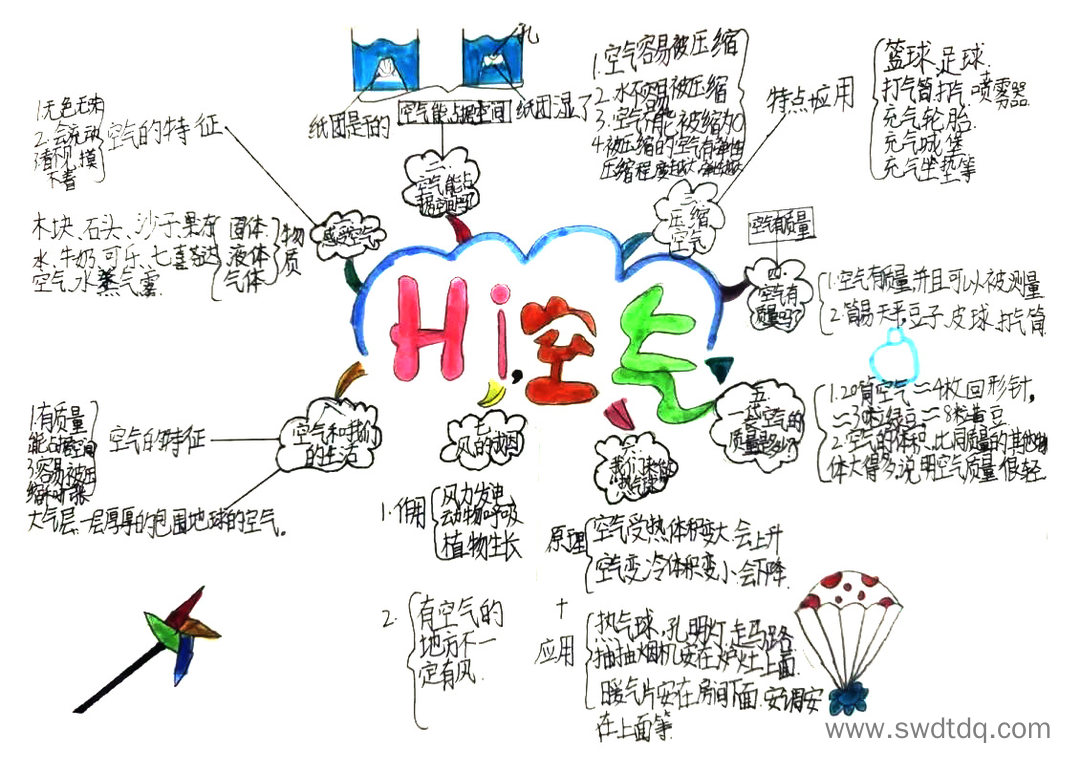 Hi,空气
一、感受空气
空气的特征
1.无色无味
2.会流动
3.看不见、摸
不着
物质
固体
液体
气体
木块、石头、沙子、果冻
水、牛奶、可乐、七喜、芬达
空气、水蒸气、雾
二、空气能占
据空间吗?
空气能占据空间
纸团是干的
纸团湿了
孔
三、压缩
空气
1.空气容易被压缩
2.水不容易被压缩
3.空气不能被缩为0
4.被压缩的空气有弹性
压缩程度越大弹性越大
特点应用
篮球、足球、
打气筒打气、喷雾器
充气轮胎、
充气城堡
充气坐垫等
空气有质量
四、空气有
质量吗?
1.空气有质量并且可以被测量
2.简易天平、豆子、皮球、打气筒
五、一袋空气的
质量是多少?
1.20筒空气≈4枚回形针,
≈30粒绿豆≈8粒黄豆
2.空气的体积比同质量的其他物
体大得多,说明空气质量很轻
六、我们来做
“热气球”
原理
空气受热体积变大,会上升
空气变冷体积变小,会下降
+
应用
热气球,孔明灯,走马路
抽抽烟机安在炉灶上面
暖气片安在房间下面,安调安
在上面等
七、风的成因
1.作用
风力发电
动物呼吸
植物生长
2.
有空气的
地方不一
定有风
空气和我们
的生活
空气的特征
1.有质量
能占据空间
3.容易被压
大气层:一层厚厚的包围地球的空气。
www.swdtdq.com